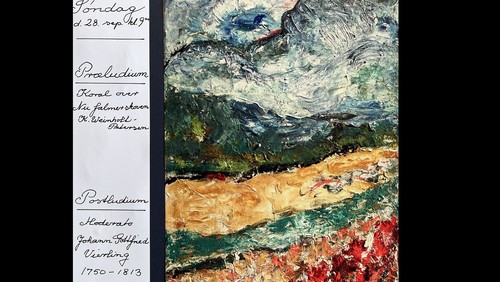 Søndag
d. 28. sep. kl. 9⁰⁰
Præludium
Koral over
Nu falmer skoven
K. Weinhold-
Pedersen
Postludium
Moderato
Johann Gottfried
Vierling
1750-1813